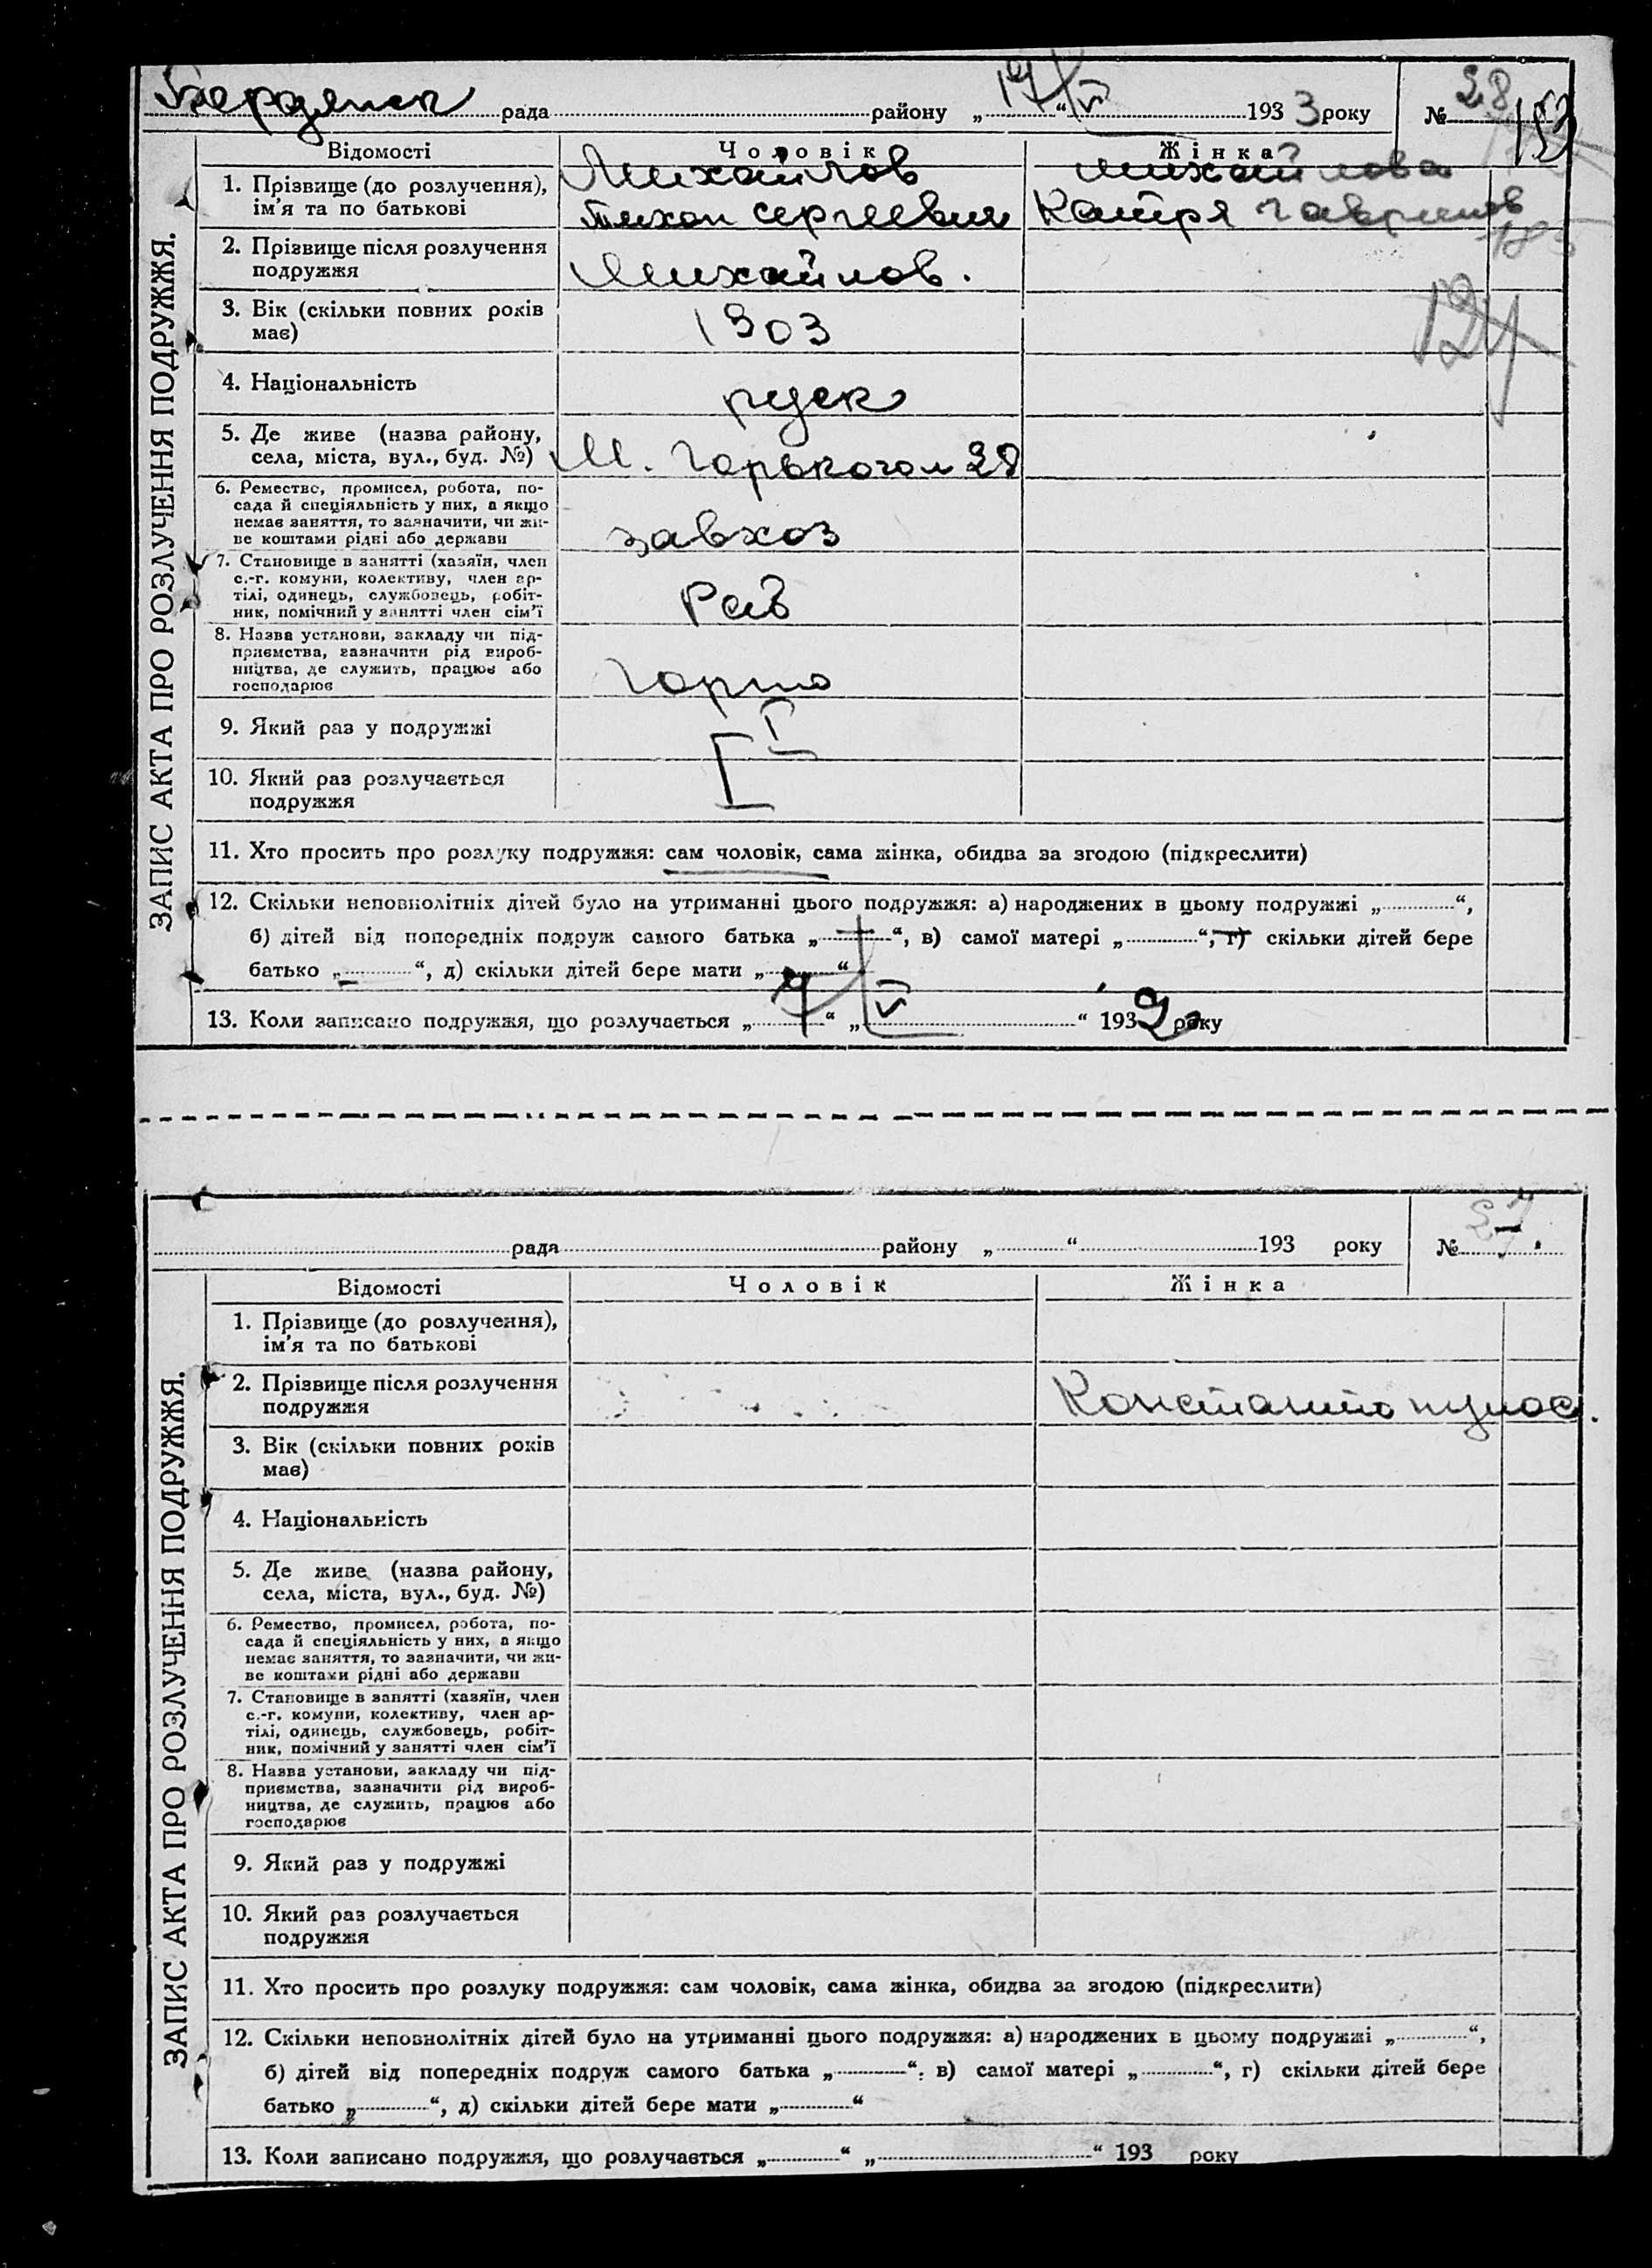 ЗАПИС АКТА ПРО РОЗЛУЧЕННЯ ПОДРУЖЖЯ.
Бердянск рада района „17“ V 1933 року № 28
Відомості Чоловік Жінка
1. Прізвище (до розлучення), Михайлов Михайлова
ім'я та по батькові Тихон Сергеевич Катря Гаврилов
2. Прізвище після розлучення
подружжя Михайлов.
3. Вік (скільки повних років 1903
має)
124
4. Національність руск
5. Де живе (назва району,
села, міста, вул., буд. №) М. Горького 28
6. Ремество, промисел, робота, по-
сада й спеціяльність у них, а якщо
немає заняття, то зазначити, чи жи-
ве коштами рідні або держави завхоз
7. Становище в занятті (хазяїн, член
с.-г. комуни, колективу, член ар-
тілі, одинець, службовець, робіт-
ник, помічний у занятті член сім'ї Раб
8. Назва установи, закладу чи під-
приємства, зазначити рід вироб-
ництва, де служить, працює або
господарює
9. Який раз у подружжі I
10. Який раз розлучається I
подружжя
11. Хто просить про розлуку подружжя: сам чоловік, сама жінка, обидва за згодою (підкреслити)
12. Скільки неповнолітніх дітей було на утриманні цього подружжя: а) народжених в цьому подружжі „ “,
б) дітей від попередніх подруж самого батька „ “, в) самої матері „ “, г) скільки дітей бере
батько „ “, д) скільки дітей бере мати „ “
13. Коли записано подружжя, що розлучається „7“ „V“ 1932 року
ЗАПИС АКТА ПРО РОЗЛУЧЕННЯ ПОДРУЖЖЯ.
рада району „ “ 193 року № 27.
Відомості Чоловік Жінка
1. Прізвище (до розлучення),
ім'я та по батькові
2. Прізвище після розлучення
подружжя Константопулос.
3. Вік (скільки повних років
має)
4. Національність
5. Де живе (назва району,
села, міста, вул., буд. №)
6. Ремество, промисел, робота, по-
сада й спеціяльність у них, а якщо
немає заняття, то зазначити, чи жи-
ве коштами рідні або держави
7. Становище в занятті (хазяїн, член
с.-г. комуни, колективу, член ар-
тілі, одинець, службовець, робіт-
ник, помічний у занятті член сім'ї
8. Назва установи, закладу чи під-
приємства, зазначити рід вироб-
ництва, де служить, працює або
господарює
9. Який раз у подружжі
10. Який раз розлучається
подружжя
11. Хто просить про розлуку подружжя: сам чоловік, сама жінка, обидва за згодою (підкреслити)
12. Скільки неповнолітніх дітей було на утриманні цього подружжя: а) народжених в цьому подружжі „ “,
б) дітей від попередніх подруж самого батька „ “, в) самої матері „ “, г) скільки дітей бере
батько „ “, д) скільки дітей бере мати „ “
13. Коли записано подружжя, що розлучається „ “ „ “ 193 року